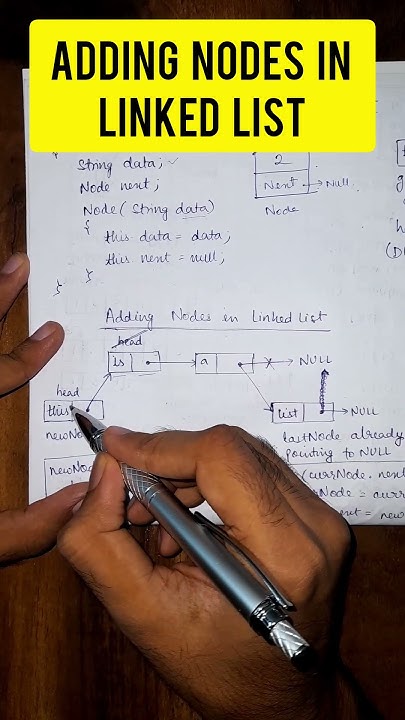 ADDING NODES IN
LINKED LIST
{
String data;
Node next;
Node (String data)
{
this data = data;
this next = null;
}
}
2
Next → Null
Node
Adding Nodes in Linked List
head
is
a
NULL
head
this
list
NULL
lastNode already
pointing to NULL
(currNode. next
= curr
= new